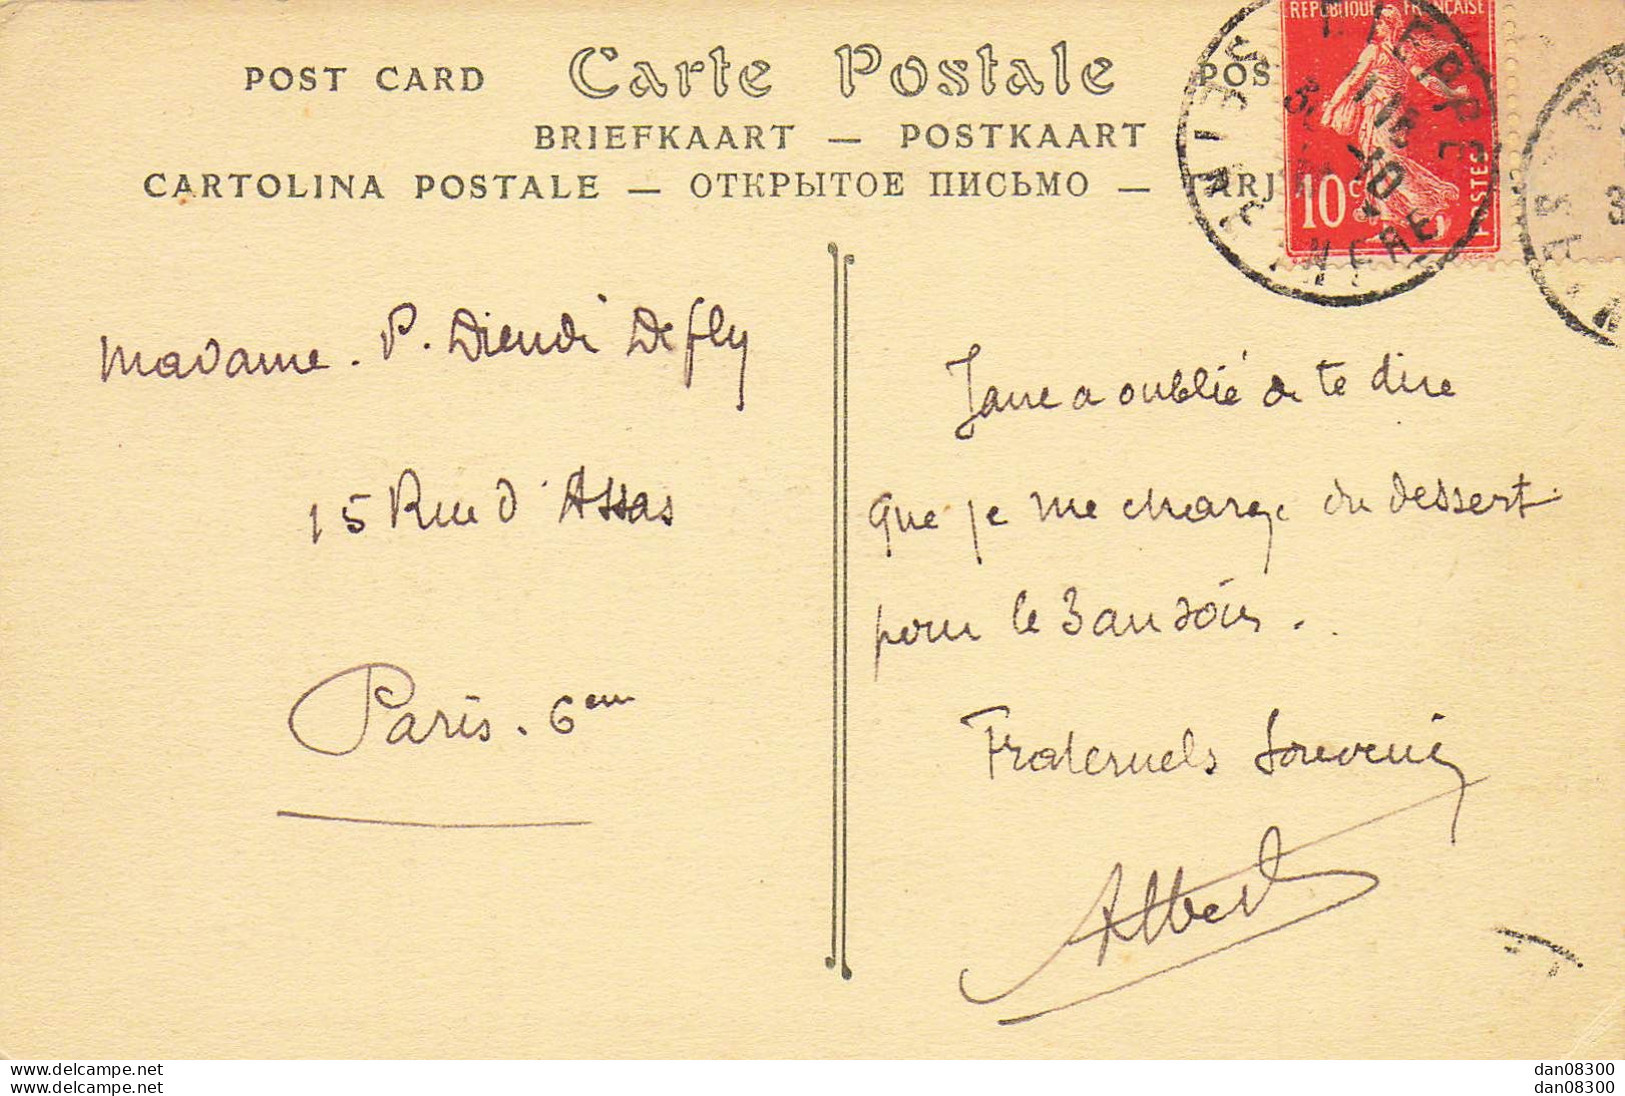 POST CARD Carte Postale POS
BRIEFKAART — POSTKAART
CARTOLINA POSTALE — ОТКРЫТОЕ ПИСЬМО — TARJ
REPUBLIQUE FRANÇAISE
10 c
POSTES
DIEPPE
SEINE INFRE
Madame. P. Dieudé Defly
15 Rue d'Assas
Paris. 6em
Jane a oublié de te dire
que je me charge du dessert
pour le 3 au soir.
Fraternels souvenirs
Albert
Delcampe.net
Delcampe.net
dan08300
dan08300